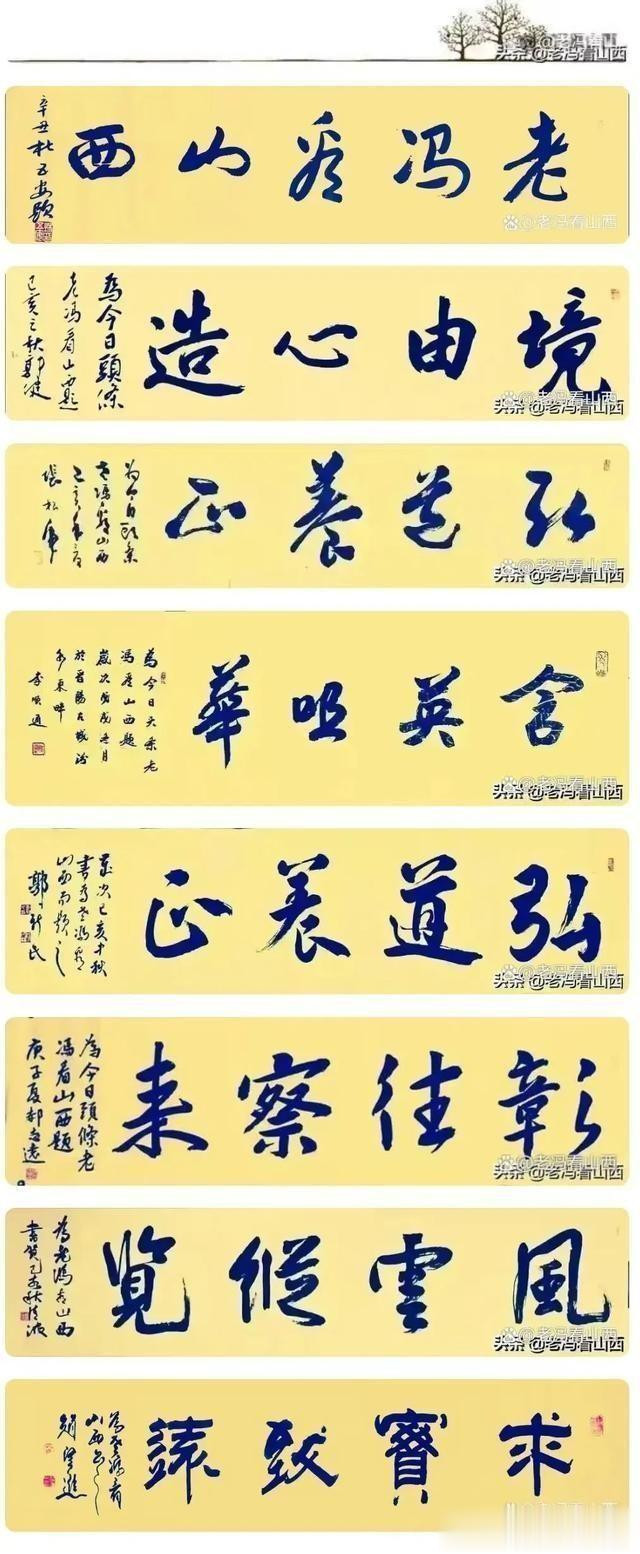 头条@老冯看山西
老冯看山西
辛丑
@老冯看山西
境由心造
為今日頭條
老冯看山西题
己亥之秋郭健
头条@老冯看山西
弘道養正
为今日头条
老冯看山西
头条@老冯看山西
含英咀華
為今日头条老
冯看山西题
歲次戊戌冬月
於晋陽古城汾
水東畔
李順通
头条@老冯看山西
弘道養正
歲次己亥中秋
書為老冯看
山西而题之
郭新民
头条@老冯看山西
彰往察来
為今日頭條老
冯看山西题
庚子夏郝志遠
头条@老冯看山西
風雲縱覽
為老馮看山西
头条@老冯看山西
求寶致遠
為老馮看
趙望進
@老冯看山西